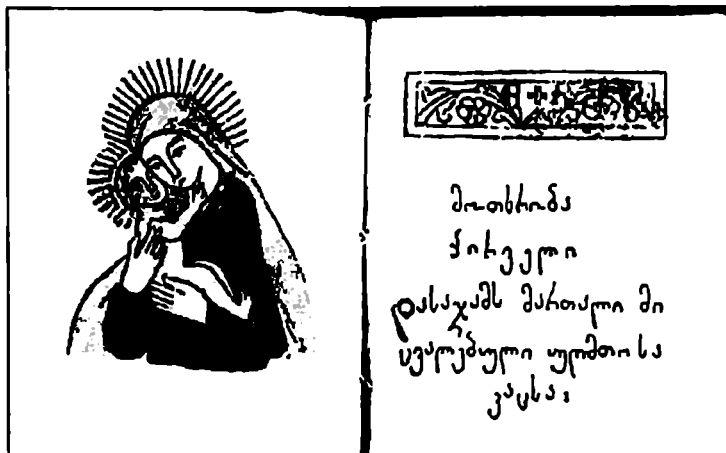 მოთხრობა
პირველი
დასაჯამს მართალი მი
ცვალებული უღმთოსა
კაცსა: